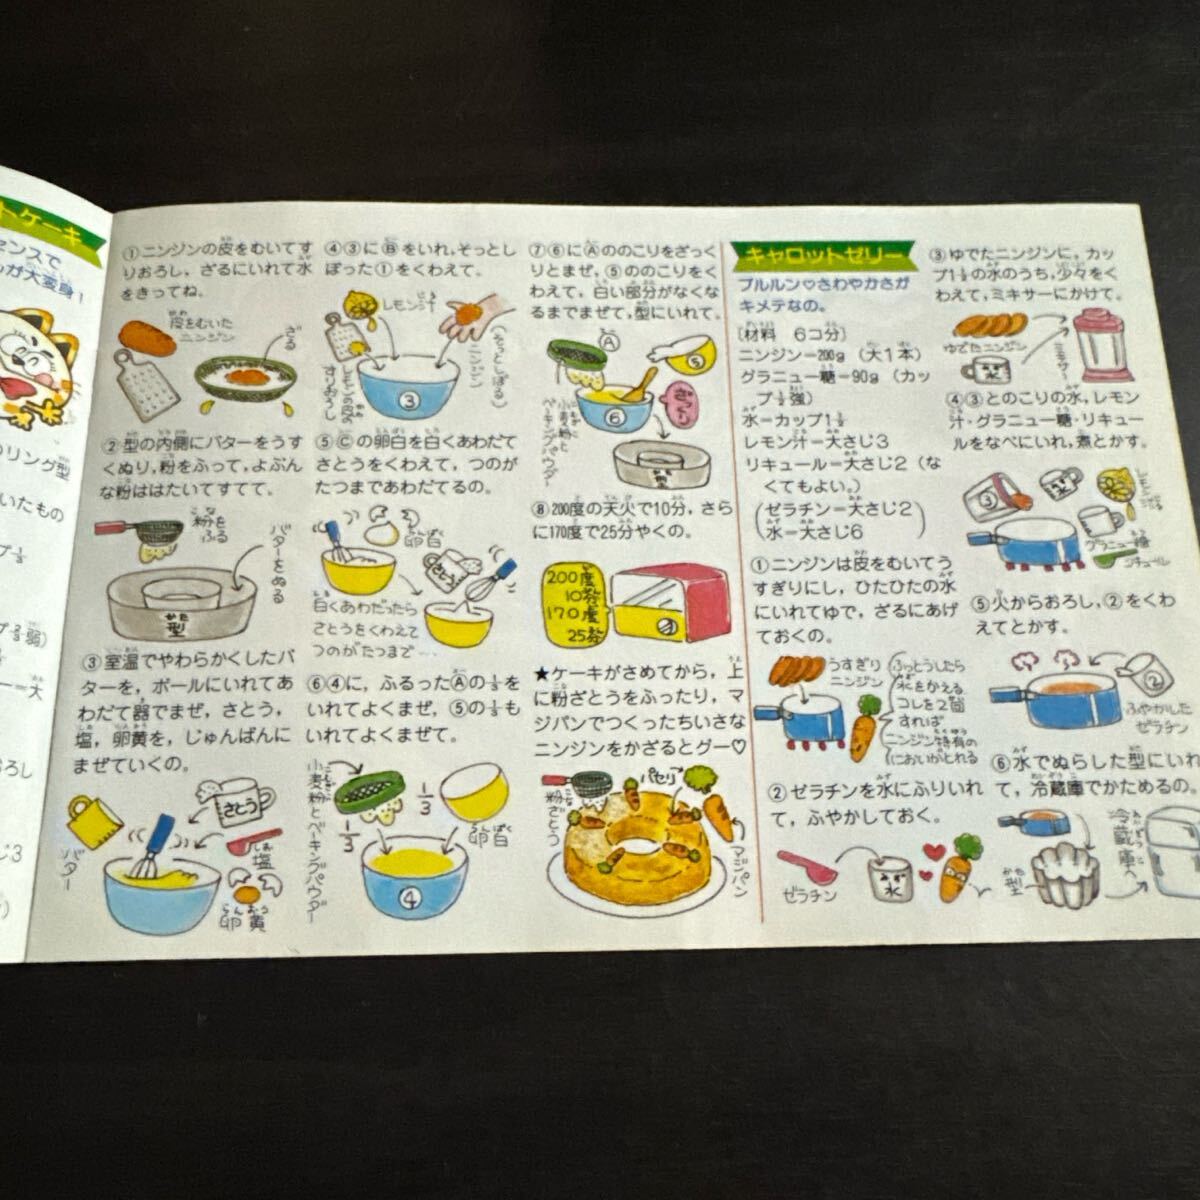 トケーキ
センスで
が大変身！
リング型
いたもの
弱）
ー＝大
おろし
じ3
①ニンジンの皮をむいてす
りおろし，ざるにいれて水
をきってね。
皮をむいた
ニンジン
ざる
②型の内側にバターをうす
くぬり，粉をふって，よぶん
な粉ははたいてすてて。
粉を
ふる
バターをぬる
型
③室温でやわらかくしたバ
ターを，ボールにいれてあ
わだて器でまぜ，さとう，
塩，卵黄を，じゅんばんに
まぜていくの。
バター
さとう
塩
卵黄
④③にⒷをいれ，そっとし
ぼった①をくわえて。
レモン汁
レモンの皮の
すりおろし
ニンジン
（そっとしぼる）
③
⑤Ⓒの卵白を白くあわだて
さとうをくわえて，つのが
たつまであわだてるの。
卵白
さとう
白くあわだったら
さとうをくわえて
つのがたつまで…
⑥④に，ふるったⒶの⅓を
いれてよくまぜ，⑤の⅓も
いれてよくまぜて。
小麦粉とベーキングパウダー
1/3
1/3
卵白
④
⑦⑥にⒶののこりをざっく
りとまぜ，⑤ののこりをく
わえて，白い部分がなくな
るまでまぜて，型にいれて。
Ⓐ
⑤
小麦粉と
ベーキングパウダー
⑥
ざっくり
型
⑧200度の天火で10分，さら
に170度で25分やくの。
200度
10分
170度
25分
★ケーキがさめてから，上
に粉ざとうをふったり，マ
ジパンでつくったちいさな
ニンジンをかざるとグー♡
粉ざとう
パセリ
マジパン
キャロットゼリー
プルルン♡さわやかさが
キメテなの。
〔材料　6コ分〕
ニンジン＝200g（大1本）
グラニュー糖＝90g（カッ
プ½強）
水＝カップ1½
レモン汁＝大さじ3
リキュール＝大さじ2（な
くてもよい。）
（ゼラチン＝大さじ2
水＝大さじ6）
①ニンジンは皮をむいてう
すぎりにし，ひたひたの水
にいれてゆで，ざるにあげ
ておくの。
うすぎり
ニンジン
ふっとうしたら
水をかえる
コレを2回
すれば
ニンジン特有の
においがとれる
②ゼラチンを水にふりいれ
て，ふやかしておく。
ゼラチン
水
③ゆでたニンジンに，カッ
プ1½の水のうち，少々をく
わえて，ミキサーにかけて。
ゆでたニンジン
水
ミキサー
④③とのこりの水，レモン
汁・グラニュー糖・リキュー
ルをなべにいれ，煮とかす。
③
水
レモン汁
グラニュー糖
リキュール
⑤火からおろし，②をくわ
えてとかす。
②
ふやかした
ゼラチン
⑥水でぬらした型にいれ
て，冷蔵庫でかためるの。
型
冷蔵庫へ